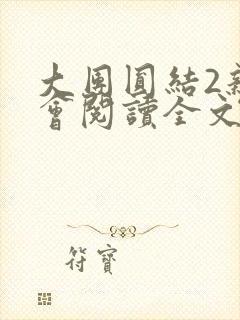 大團圓結2新
會閱讀全文
符寶